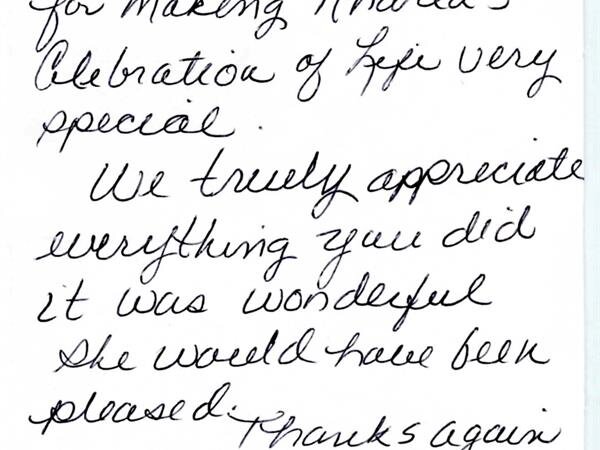 for making
Celebration of Life very
special.
We truely appreciate
everything you did
it was wonderful
She would have been
pleased.
Thanks again